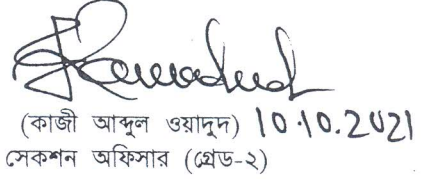 (কাজী আব্দুল ওয়াদুদ) 10.10.2021
সেকশন অফিসার (গ্রেড-২)